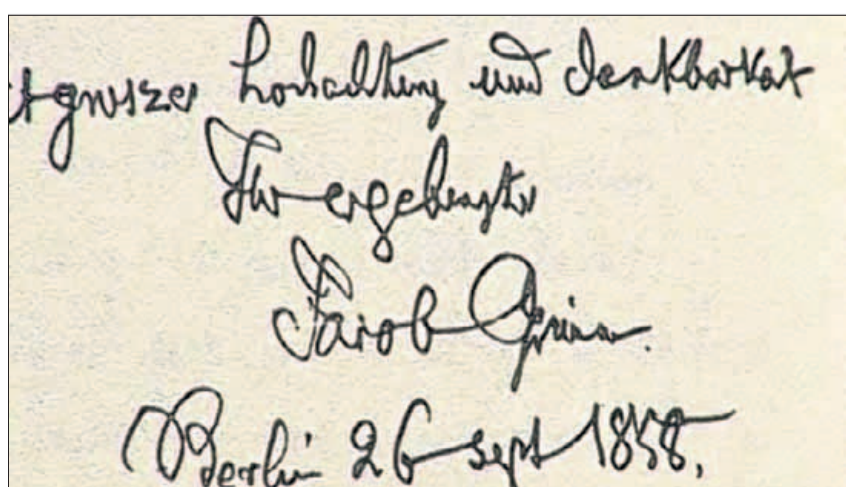 t groszer hochachtung und dankbarkeit
Ihr ergebenster
Jacob Grimm.
Berlin 26 sept 1858.